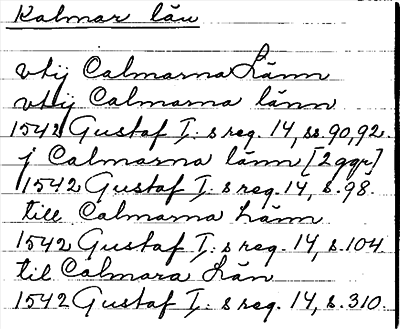 Kalmar län
vtij Calmarna Länn
vtij Calmarna länn
1542 Gustaf I:s reg. 14, ss. 90, 92.
j Calmarna länn [2 ggr]
1542 Gustaf I:s reg. 14, s. 98.
till Calmarna Länn
1542 Gustaf I:s reg. 14, s. 104
til Calmara Län
1542 Gustaf I:s reg. 14, s. 310.